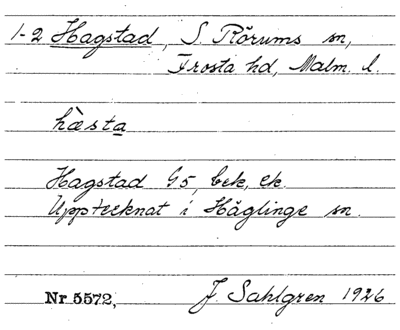 1-2 Hagstad, S. Rörums sn,
Frosta hd, Malm. l.
hὰsta
Hagstad G5, bek, ek.
Upptecknat i Häglinge sn.
Nr 5572, J. Sahlgren 1926